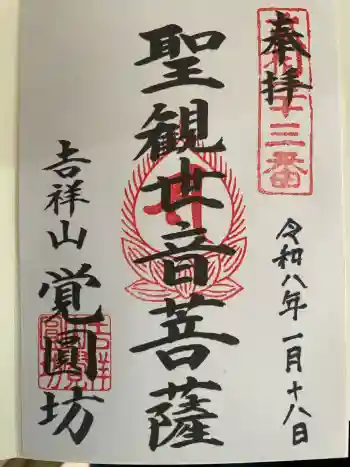 奉拝
令和八年一月十八日
聖観世音菩薩
吉祥山
覚圓坊